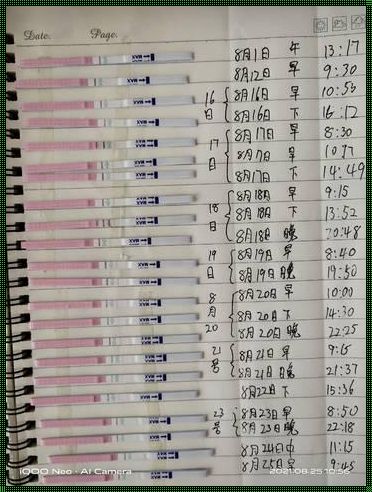 Date. Page.
8月1日 午 13:17
8月12日 早 9:30
16日
8月16日 早 10:53
8月16日 下 16:12
17日
8月17日 早 8:30
8月17日 下 14:49
18日
8月18日 早 9:15
8月18日 下 13:52
8月18日 晚 20:48
19日
8月19日 早 8:40
8月19日 晚 19:50
8月20
8月20日 早 10:00
8月20日 下 14:30
8月20日 晚 22:25
21号
8月21日 早 9:15
8月21日 晚 21:37
8月22日 下 15:36
23号
8月23日 早 8:50
8月23日 晚 22:18
8月24日 中 11:15
8月25日 早 9:45
iQOO Neo · AI Camera
2021.08.25 10:56